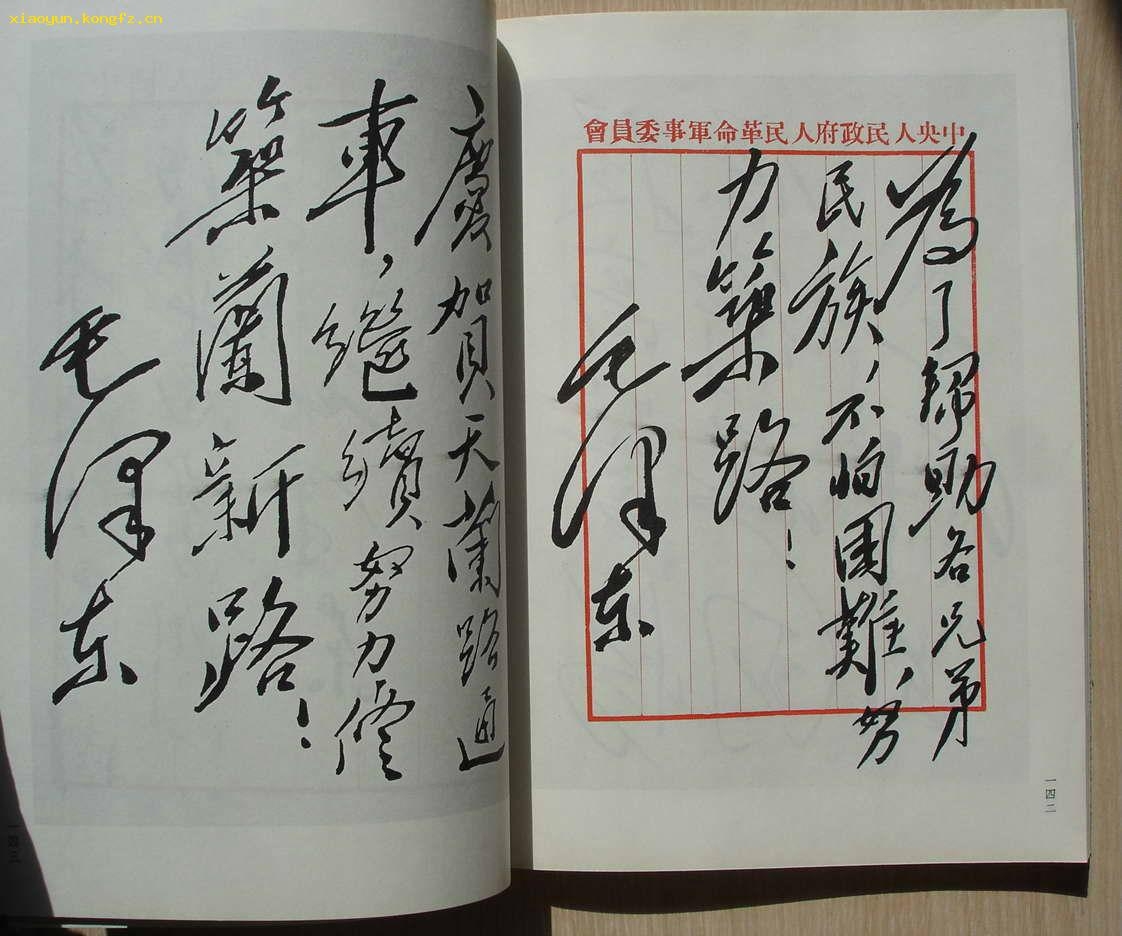 xiaoyun.kongfz.cn
中央人民政府人民革命軍事委員會
為了幫助各兄弟
民族，不怕困難，努
力築路！
毛澤东
一四二
慶賀天蘭路通
車，繼續努力修
築蘭新路！
毛澤东
一四三